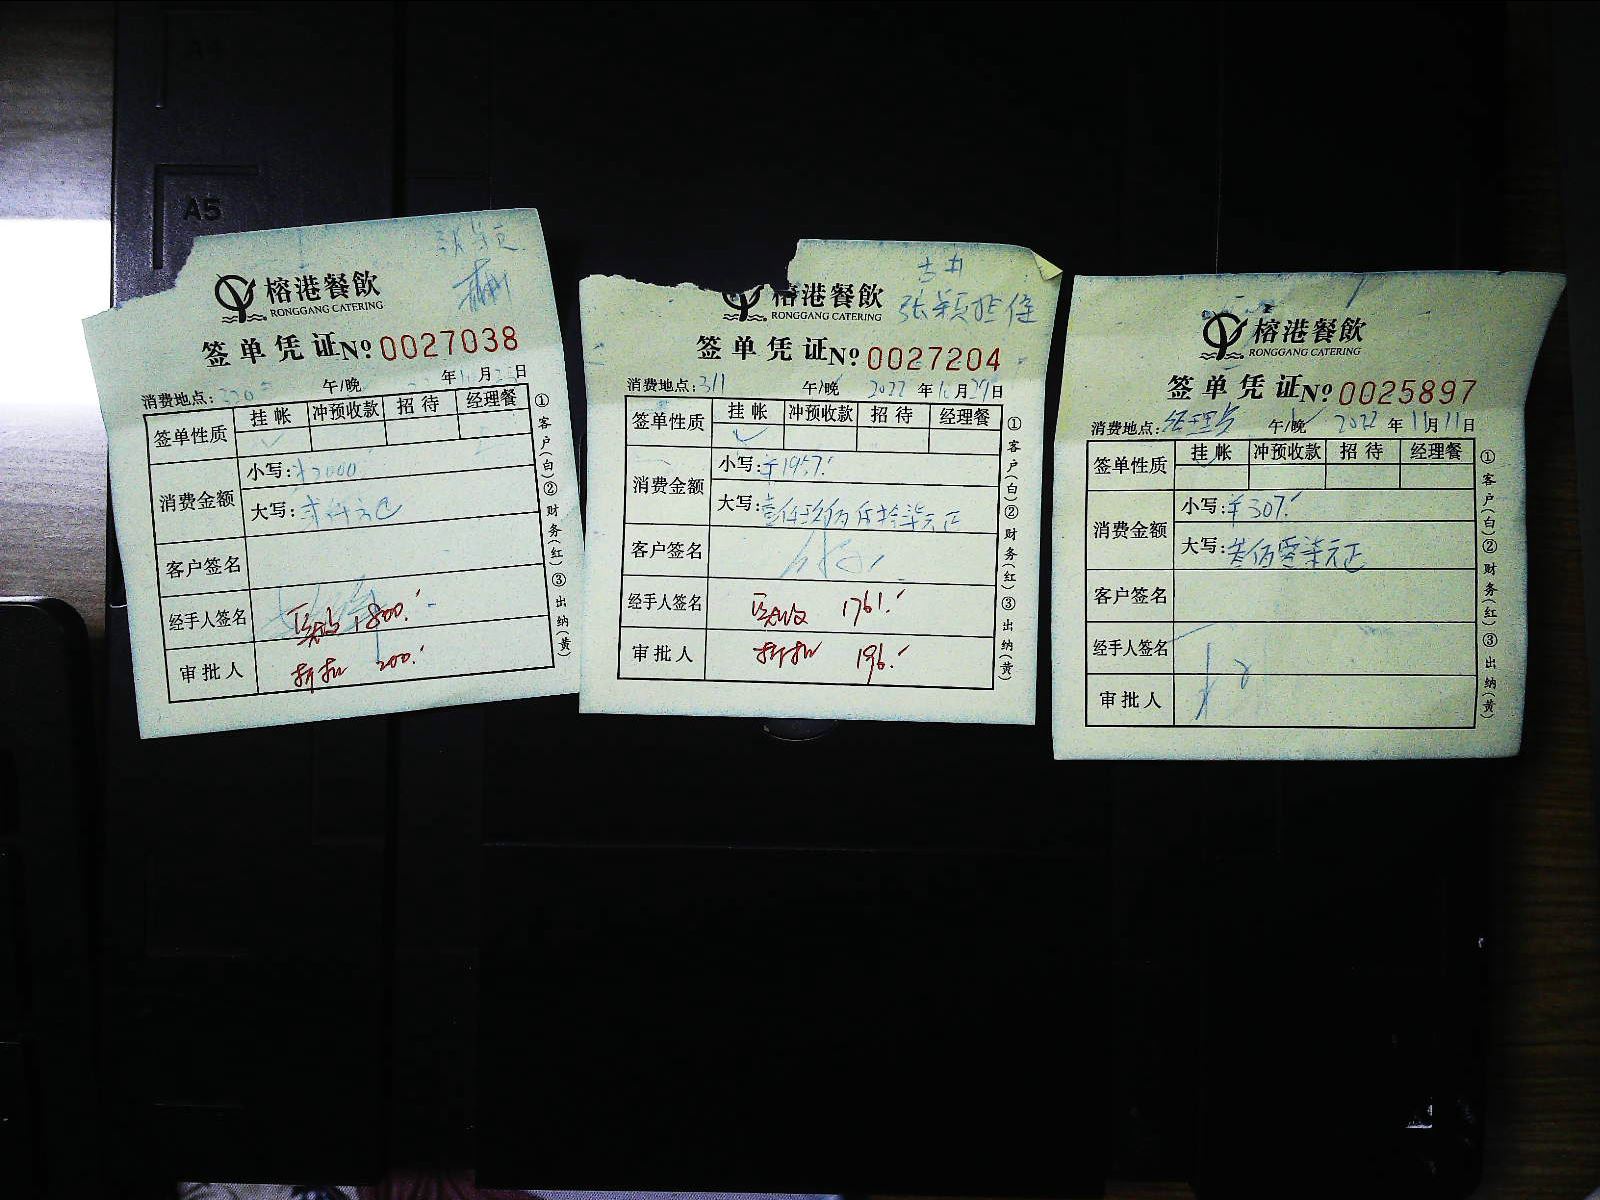 A4
A5
榕港餐飲
RONGGANG CATERING
签单凭证№ 0027038
消费地点: 午/晚 年 月 日
签单性质 挂帐 冲预收款 招待 经理餐
消费金额
小写:¥2000
大写:贰仟元
客户签名
经手人签名 1800.
审批人 折扣 200.
①客户(白)②财务(红)③出纳(黄)
张颖担保
榕港餐飲
RONGGANG CATERING
签单凭证№ 0027204
消费地点:311 午/晚 2022年 月29日
签单性质 挂帐 冲预收款 招待 经理餐
消费金额
小写:¥1957.
大写:壹仟玖佰伍拾柒元正
客户签名
经手人签名 1761.
审批人 折扣 196.
①客户(白)②财务(红)③出纳(黄)
榕港餐飲
RONGGANG CATERING
签单凭证№ 0025897
消费地点:经理 午/晚 2022年11月11日
签单性质 挂帐 冲预收款 招待 经理餐
消费金额
小写:¥307.
大写:叁佰零柒元正
客户签名
经手人签名
审批人
①客户(白)②财务(红)③出纳(黄)